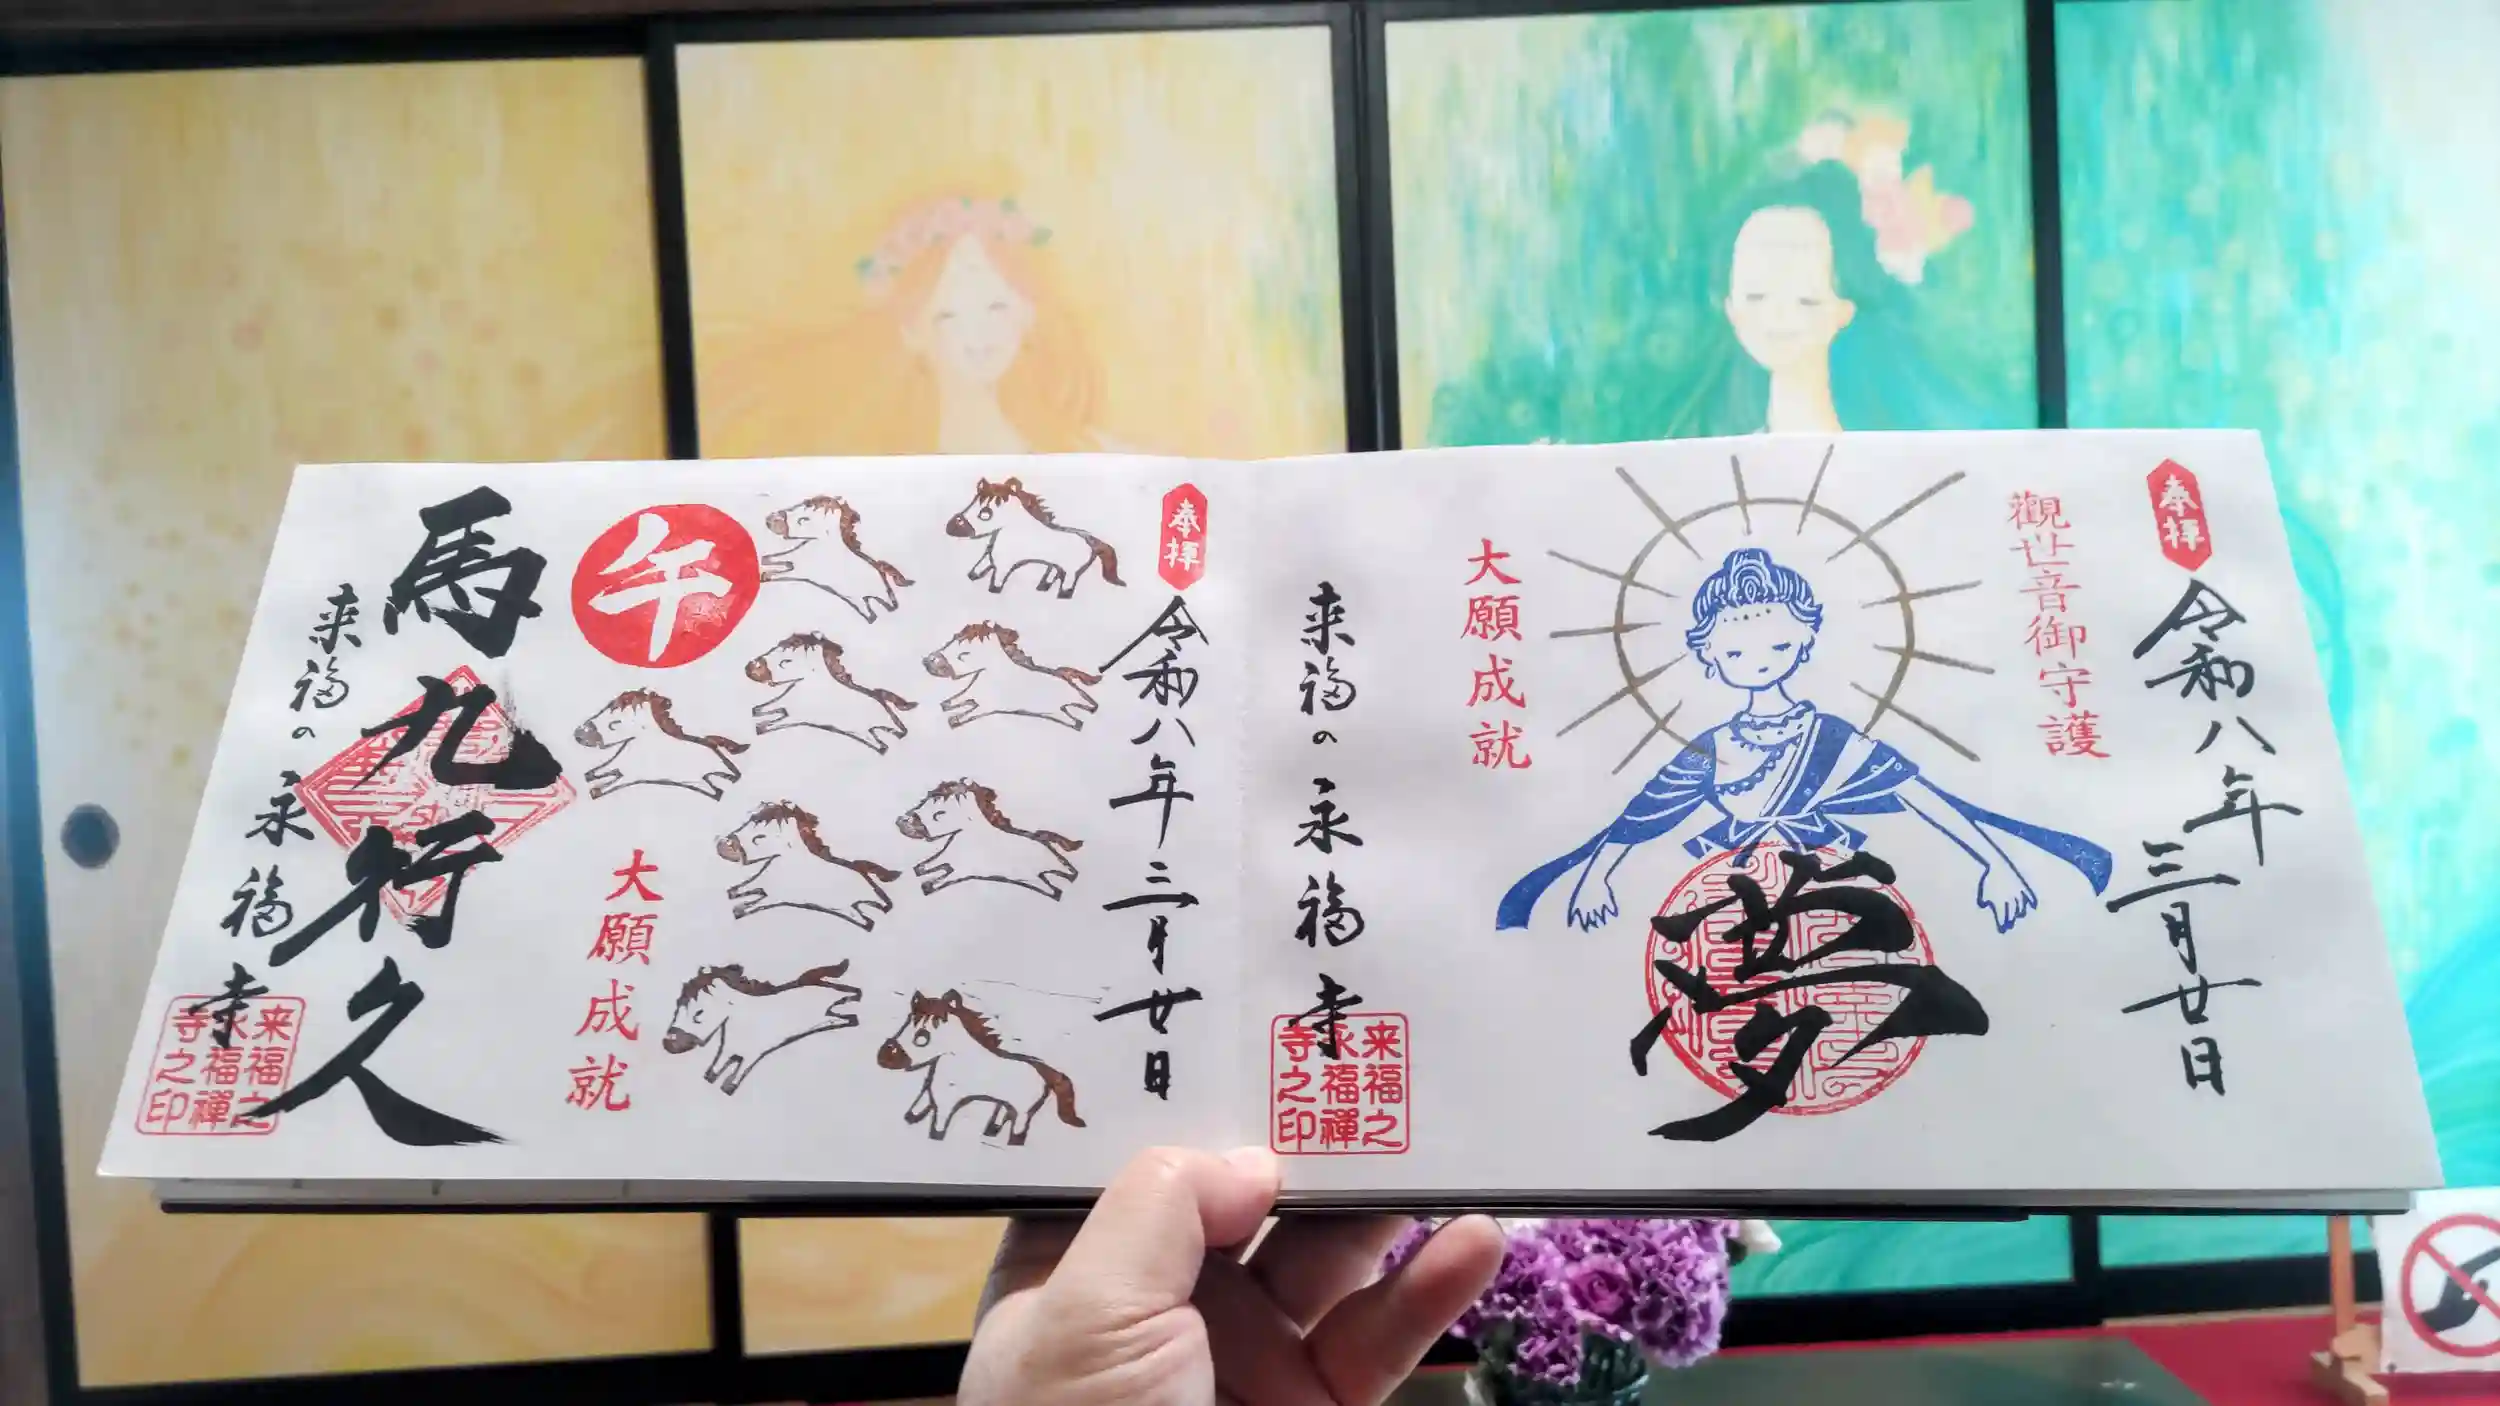 奉拝
令和八年三月廿日
觀世音御守護
夢
大願成就
来福の永福寺
来福之
永福禅
寺之印
奉拝
令和八年三月廿日
午
大願成就
馬九行久
来福の永福寺
来福之
永福禅
寺之印